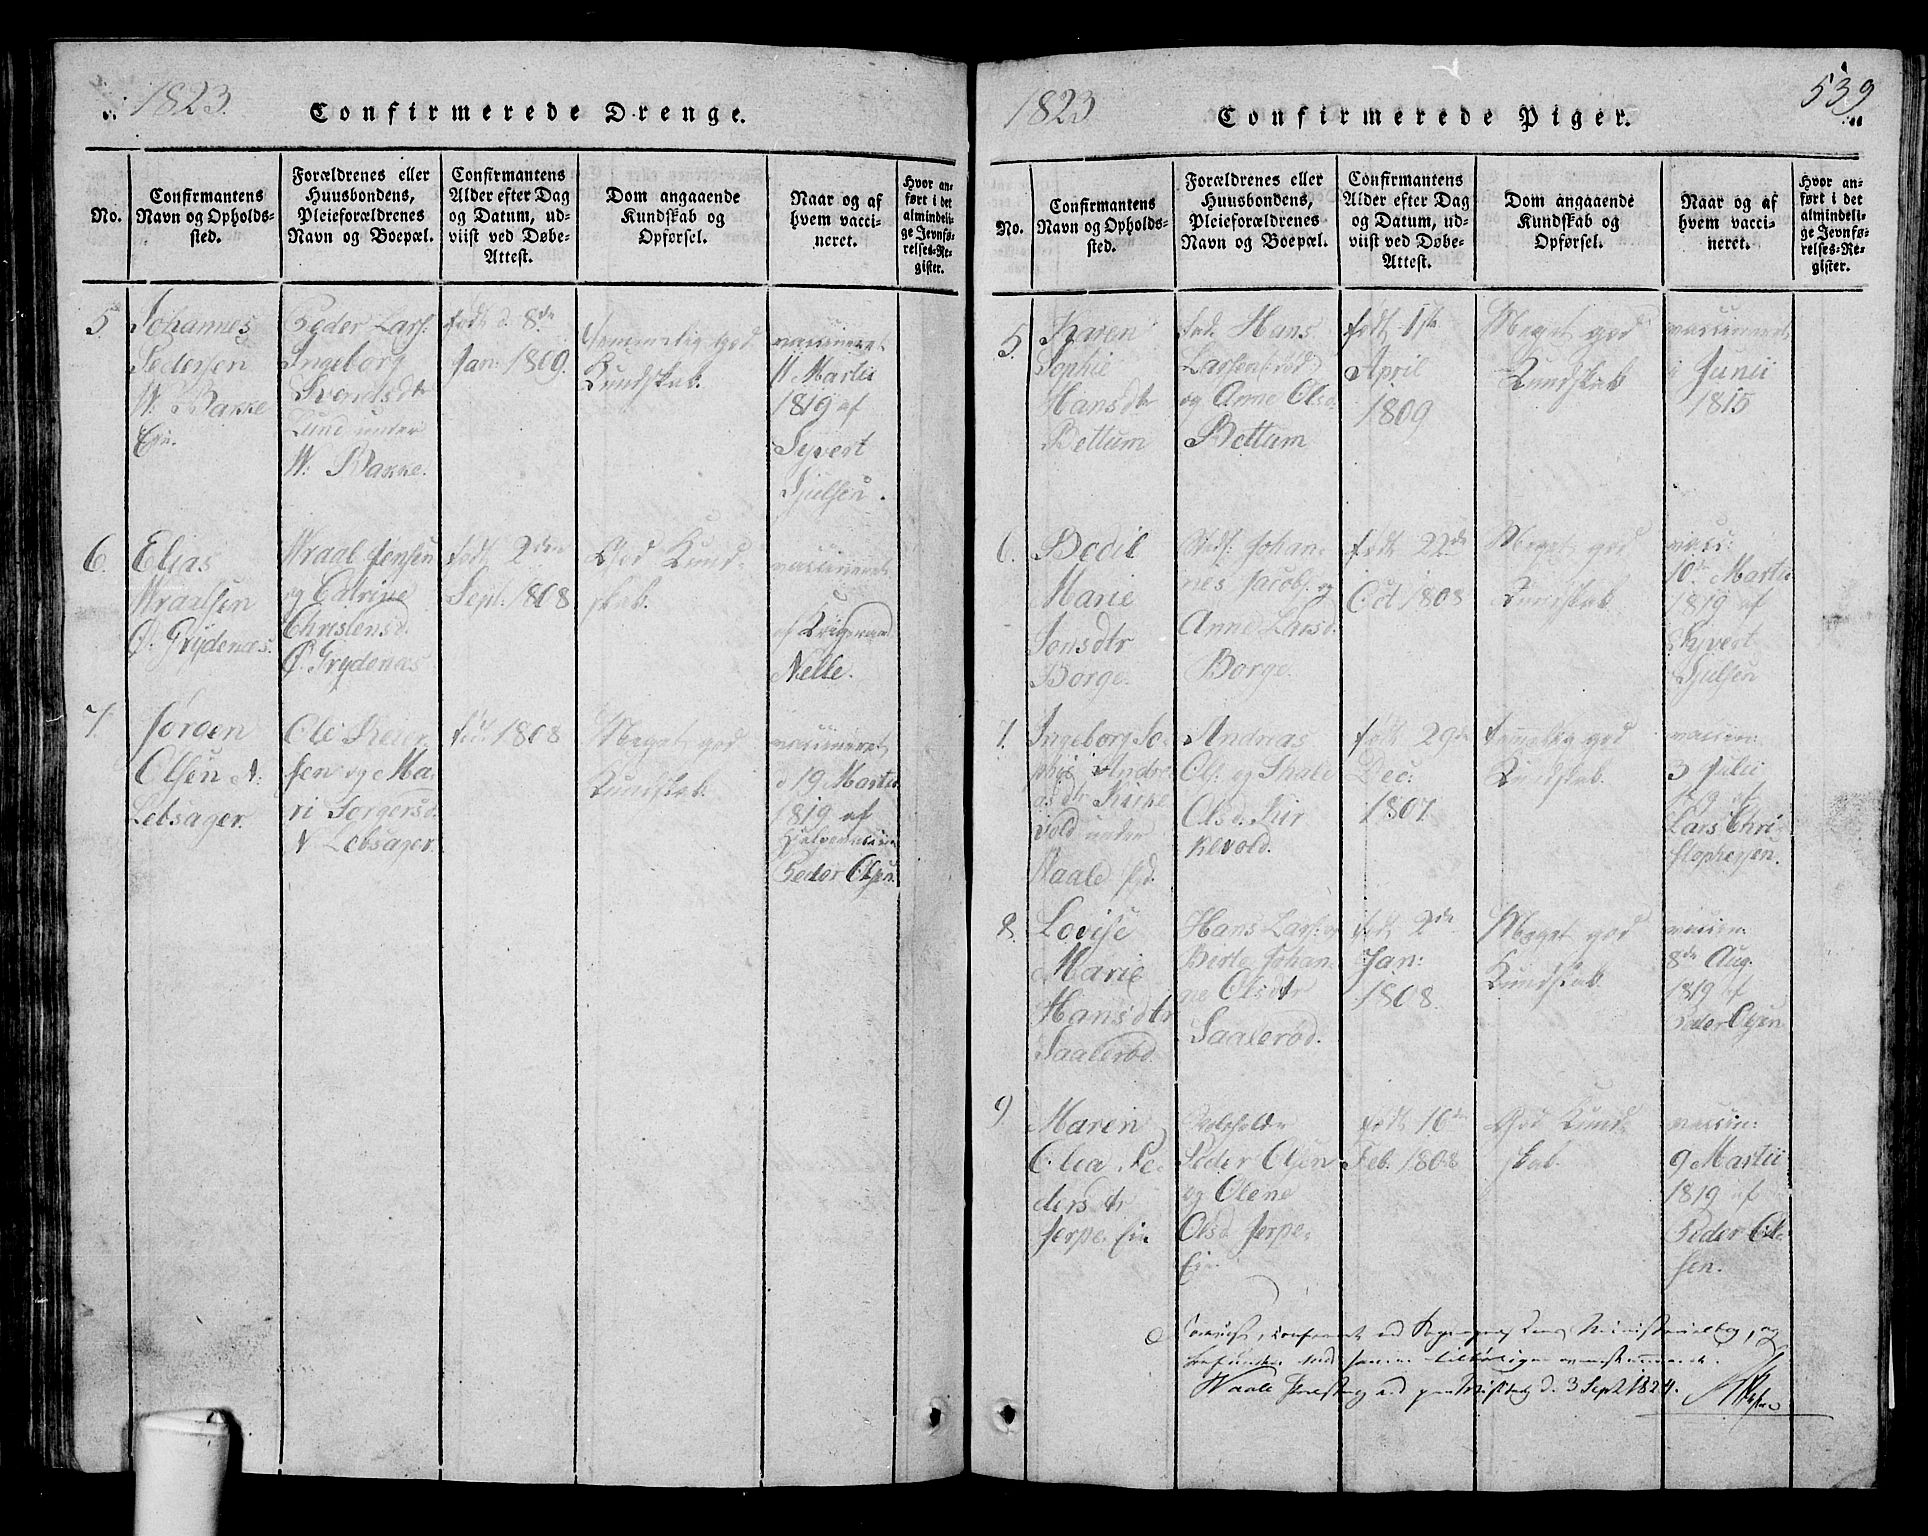 1823.
Confirmerede Drenge.
No.
Confirmantens
Navn og Opholds-
sted.
Forældrenes eller
Huusbondens,
Pleieforældrenes
Navn og Boepæl.
Confirmantens
Alder efter Dag
og Datum, ud-
viist ved Døbe-
Attest.
Dom angaaende
Kundskab og
Opførsel.
Naar og af
hvem vacci-
neret.
Hvor an-
ført i det
almindeli-
ge Jevnfø-
relses-Re-
gister.
5
Johannes
Pedersen
W. Bakke
Eie.
Peder Lars.
Ingeborg
Svendsdtr
Lund under
W: Bakke.
født d. 8de
Jan: 1809.
temmelig god
Kundskab.
vaccineret
11 Martii
1819 af
Syvert
Sjulsen.
6.
Elias
Wraalsen
Ø. Grydenæs.
Wraal Jensen
og Catrine
Christensd.
Ø. Grydenæs
født 2den
Sept. 1808
God Kund-
skab.
vaccineret
af
Nelle.
7.
Jørgen
Olsen N:
Lebsager.
Ole Reier
sen og Ma-
ri Torgersd.
N Lebsager.
fød. 1808
Meget god
Kundskab.
vaccineret
d 19 Martii
1819 af
Peder Olsen.
1823
Confirmerede Piger.
539
No.
Confirmantens
Navn og Opholds-
sted.
Forældrenes eller
Huusbondens,
Pleieforældrenes
Navn og Boepæl.
Confirmantens
Alder efter Dag
og Datum, ud-
viist ved Døbe-
Attest.
Dom angaaende
Kundskab og
Opførsel.
Naar og af
hvem vacci-
neret.
Hvor an-
ført i det
almindeli-
ge Jevnfø-
relses-Re-
gister.
5.
Karen
Sophie
Hansdtr
Bettum
Hans
Larsen
og Anne Ols
Bettum
født 1ste
April
1809
Meget god
Kundskab
vaccineret
i Junii
1815
6.
Bodil
Marie
Jonsdtr
Borge.
Johan-
nes Jacobs. og
Anne Larsd.
Borge.
født 22de
Oct 1808
Meget god
Kundskab.
vacci:
10de Martii
1819 af
Syvert
Sjulsen
7.
Ingeborg So-
phie Andre-
asdtr Kirke
vold under
Waale Pgd.
Andreas
Ols. og Thale
Olsd. Kir
kevold.
født 29de
Dec:
1807.
god
Kundskab.
vaccin:
3 Julii
1819 af
Lars Chri-
stophersen.
8.
Lovise
Marie
Hansdtr
Saalerød.
Hans Lars. og
Berte Johan-
ne Olsdtr
Saalerød.
født 2de
Jan:
1808.
Meget god
Kundskab.
vaccin:
8de Aug.
1819 af
Peder Olsen
9
Maren
Olea Pe-
dersdtr
Jerpe. Eie
Peder Olsen
og Olene
Olsd Jerpe.
Eie.
født 16de
Feb. 1808
God Kund-
skab.
vaccin:
9 Martii
1819 af
Peder Ol-
sen.
confereret med Ministerialbog, og
befunden med samme
Waale Præstegaard d. 3 Sept 1824.